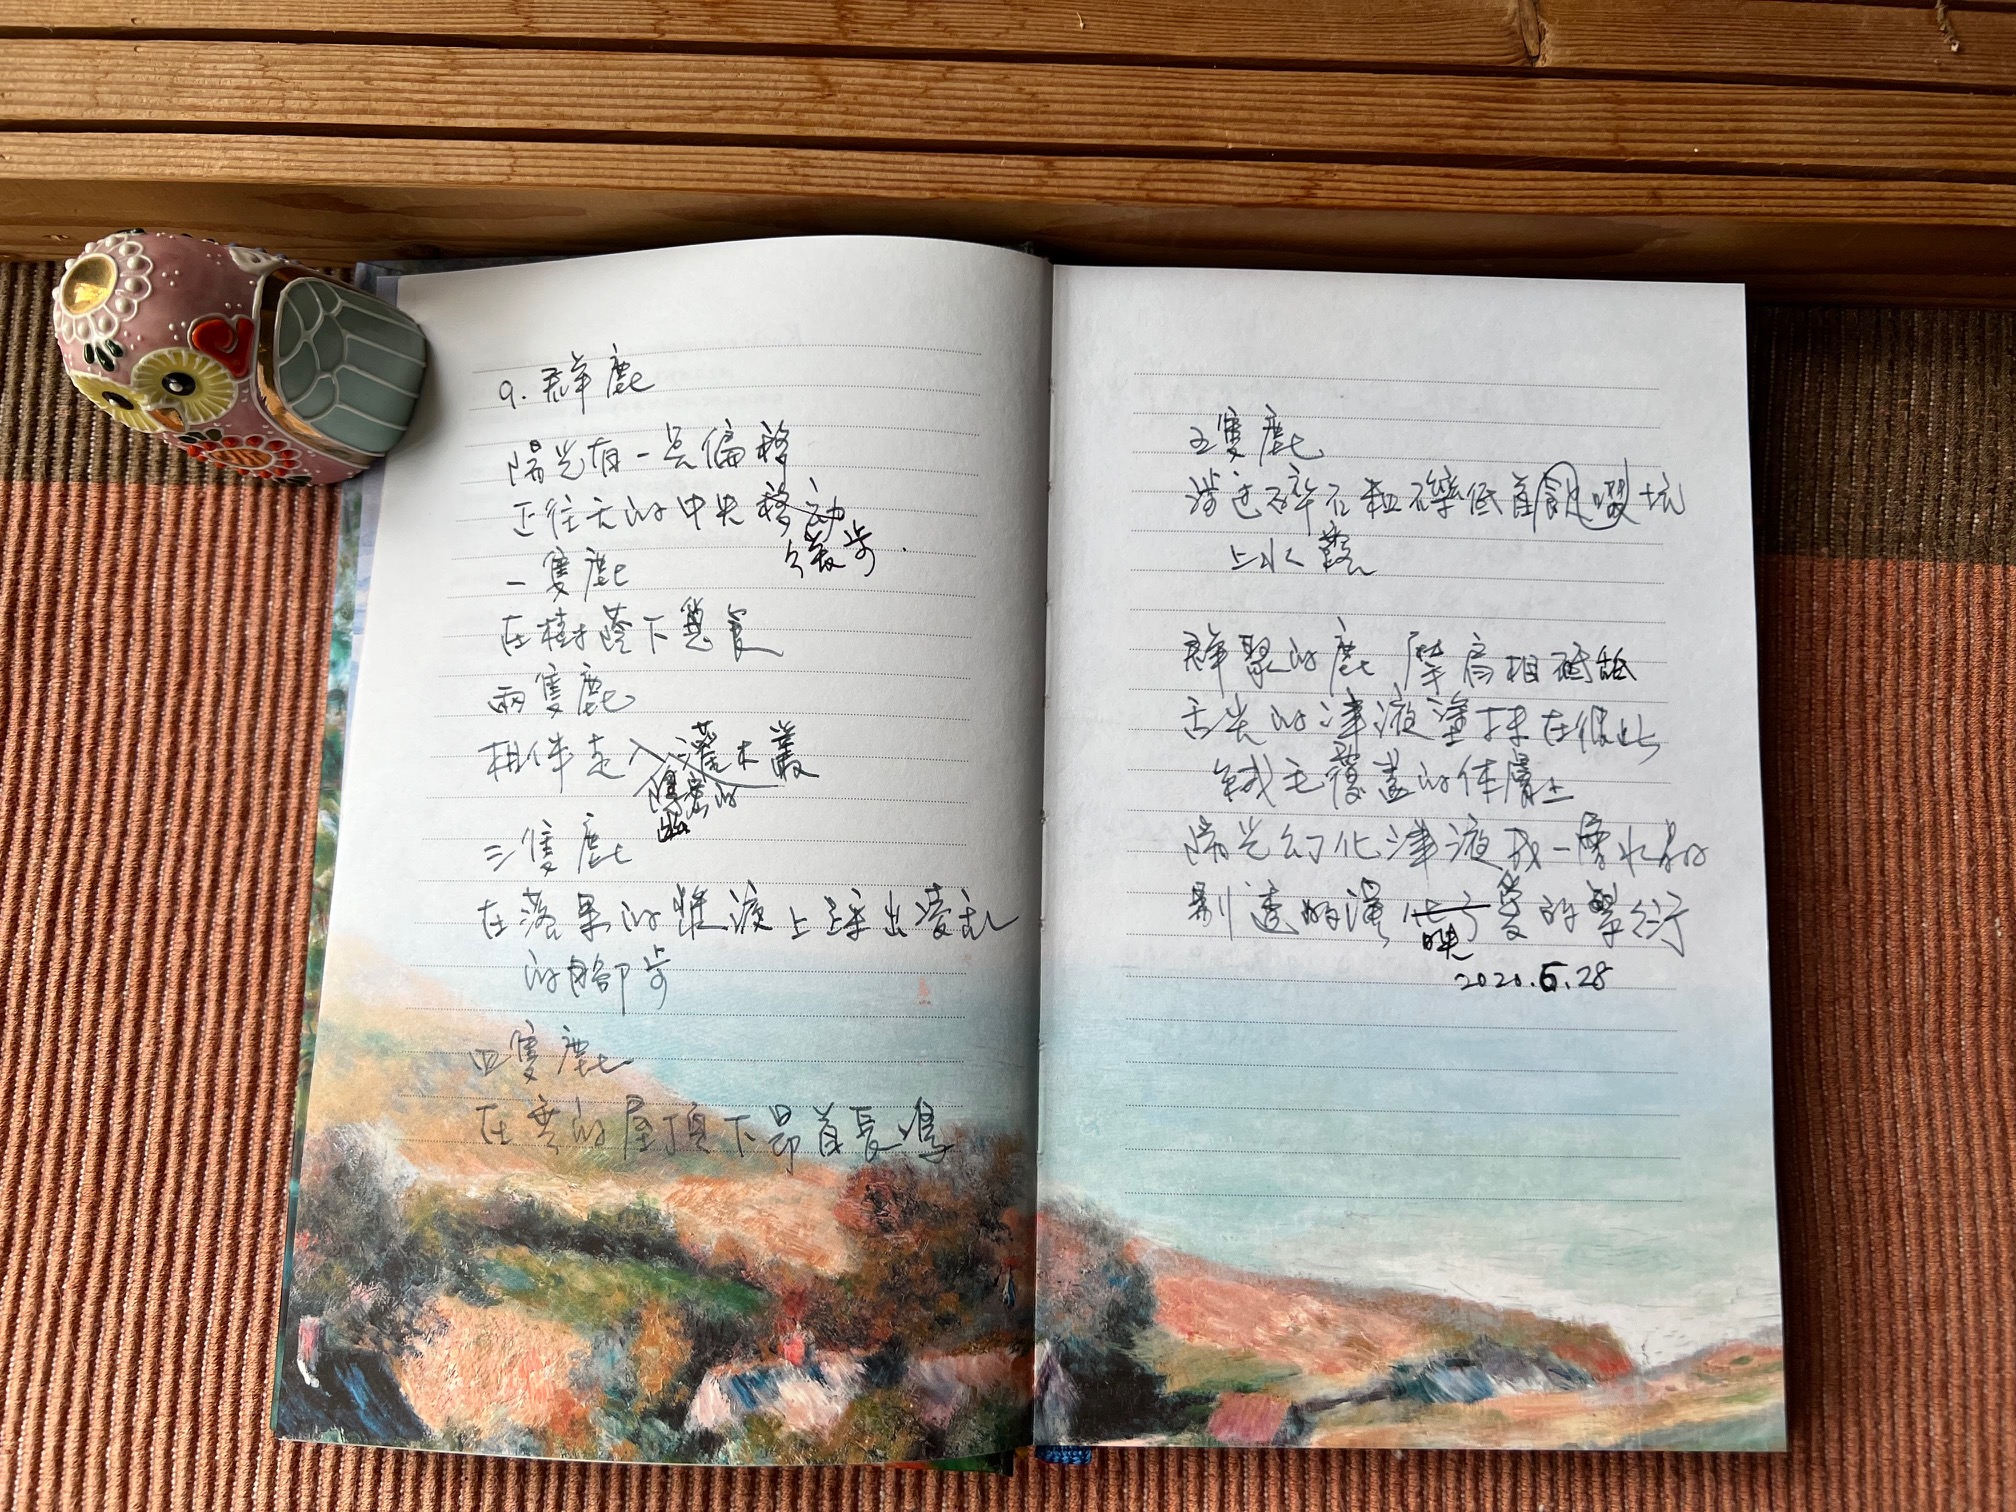 9. 群鹿
陽光有一點偏移
正往天的中央移動
散步
一隻鹿
在樹蔭下覓食
兩隻鹿
相伴走入灌木叢
隱密的
三隻鹿
在落果的堆漬上踩出凌亂
的腳步
四隻鹿
在寮的屋頂下昂首長鳴
五隻鹿
涉過碎石粗礫低首飲啜坑
上水窪
群聚的鹿 摩肩相舐
舌尖的津液塗抹在彼此
絨毛覆蓋的体膚上
陽光幻化津液成一層水晶的
剔透的漾 愛的繁衍
映
2020.6.28